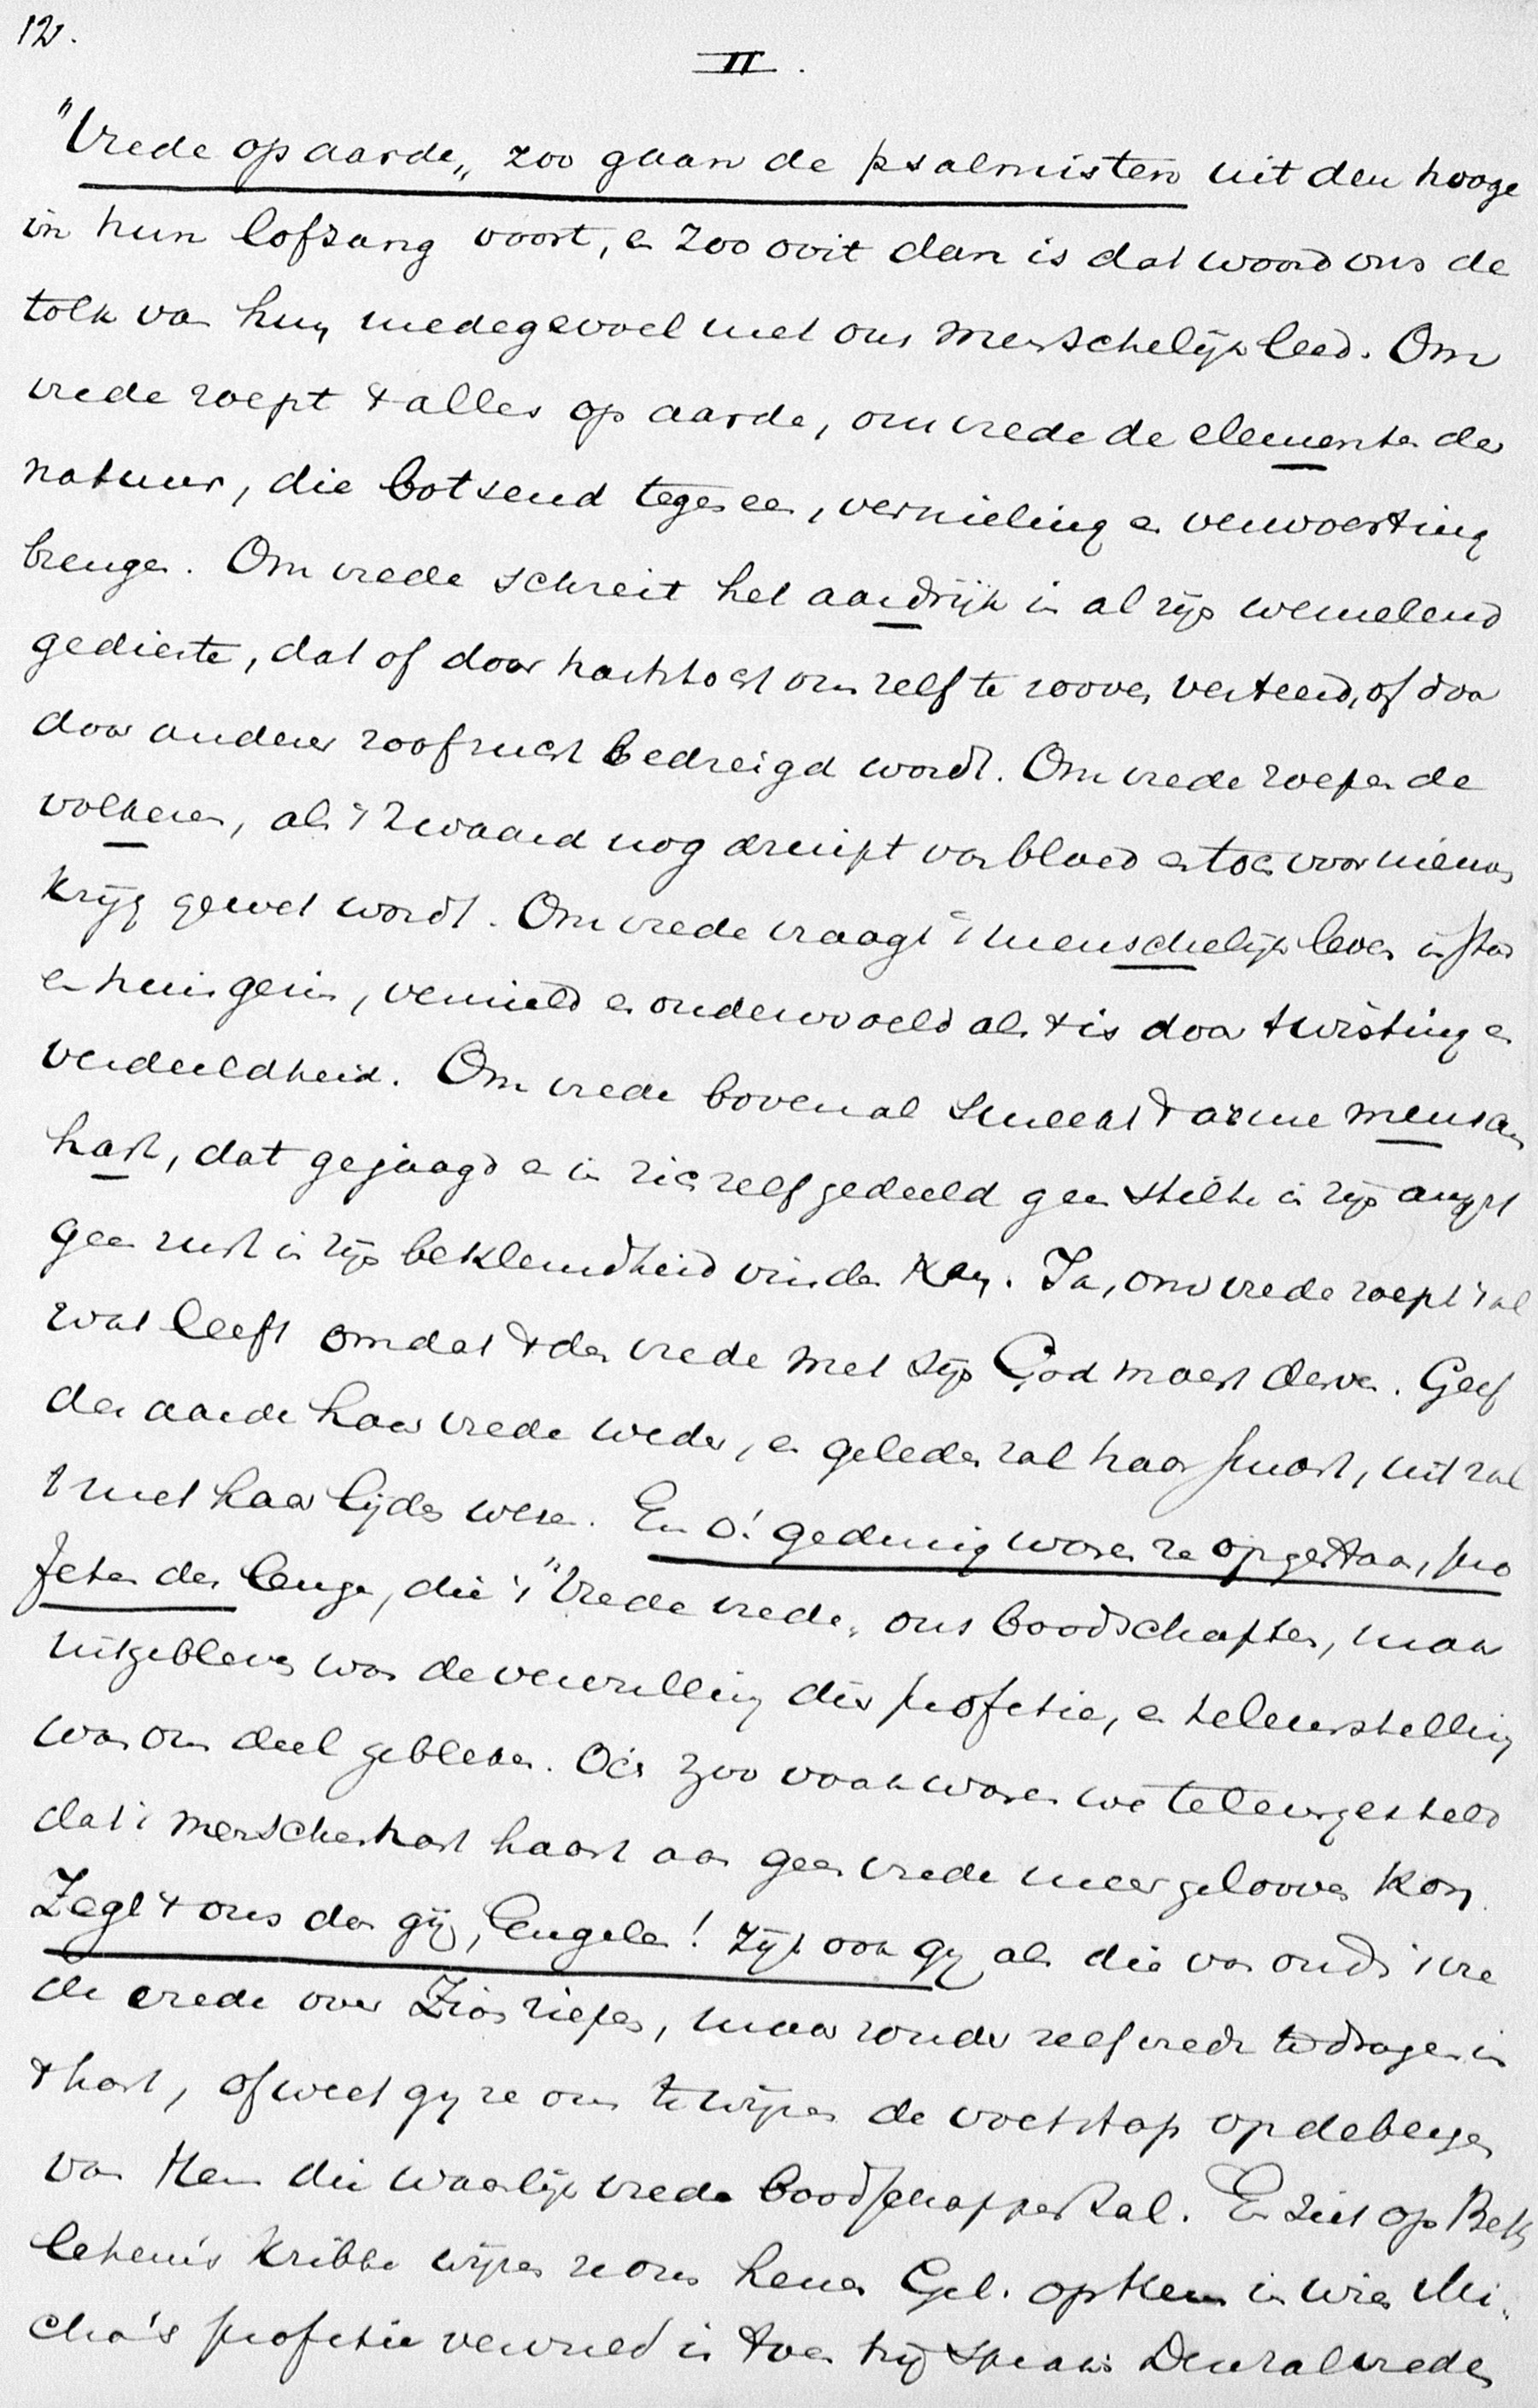 12.
II.
"Vrede op aarde„ zoo gaan de psalmisten uit den hooge
in hun lofzang voort, en zoo ooit dan is dat woord ons de
tolk van hun medegevoel met ons menschelijk leed. Om
vrede roept 't alles op aarde, om vrede de elementen der
natuur, die botsend tegen een, vernieling en verwoesting
brengen. Om vrede schreit het aardrijk in al zijn wemelend
gedierte, dat of door hartstocht om zelf te rooven verteerd, of door
door anderer roofzucht bedreigd wordt. Om vrede roepen de
volkeren, als 't zwaard nog druipt van bloed en toch voor nieuwen
krijg gewet wordt. Om vrede vraagt 't menschelijk leven in stad
en huisgezin, vernield en onderwoeld als 't is door twisting en
verdeeldheid. Om vrede bovenal smeekt 't arme menschen
hart, dat gejaagd en in zich zelf gedeeld geen stilte in zijn angst
geen rust in zijn beklemdheid vinden kan. Ja, om vrede roept 't al
wat leeft omdat 't den vrede met zijn God moest derven. Geef
der aarde haar vrede weder, en geleden zal haar smart, uit zal
't met haar lijden wezen. En o! gedurig waren ze opgestaan, pro
feten der leugen, die 't "Vrede vrede„ ons boodschapten, maar
uitgebleven was de vervulling dier profetie, en teleurstelling
was ons deel gebleven. Och zoo vaak waren we teleurgesteld
dat 't menschenhart haast aan geen vrede meer gelooven kon.
Zegt 't ons dan gij, Engelen! Zijt ook gij als die van ouds 't vre
de vrede over Zion riepen, maar zonder zelf vrede te dragen in
't hart, of weet gij ze ons te wijzen de voetstap op de bergen
van Hem die waarlijk vrede boodschappen zal. En ziet op Beth
lehem's kribbe wijzen ze ons henen Gel. op Hem in wien Mi-
cha's profetie vervuld is toen hij sprak: Deze zal vrede